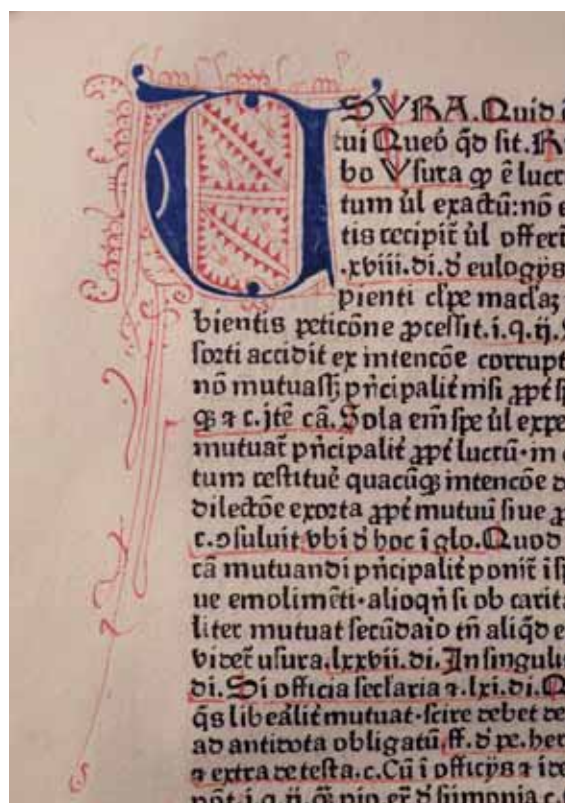 USVRA. Quid
tui Queō q̄d sit.
bo Vsura qꝫ ē lucr
tum ūl exactū: nō e
tis recipit̄ ūl offert
.xviii. di. d̓ eulogijs
pienti clꝑe macla;
bientis peticōne ꝓcessit. i. q. ij.
sorti accidit ex intencōe corrupt
nō mutuassꝫ pͥncipalit̄ nisi ꝓpt̄ sp
qꝫ ⁊ c. jtē cā. Sola em̄ spe ūl expe
mutuat̄ pͥncipalit̄ ꝓpt̄ lucrū· in
tum restituē quacūqꝫ intencōe d
dilectōe exorta ꝓpt̄ mutuū siue ꝓ
c. ↄsuluit vbi d̓ hoc ī glo. Quod
cā mutuandi pͥncipalit̄ ponit̄ i sp
ue emolimēti· alioqn̄ si ob carita
liter mutuat secūdaio tn̄ aliq̄d e
videt̄ usura. lxxvii. di. In singulis
di. Si officia seclaria ⁊. lxi. di. Q
q̄s libeālit̄ mutuat· scire debet de
ad antidota obligatū ff. d̓ pe. her
⁊ extra de testa. c. Cū ī officijs ⁊ ide
pōt. i. q. ij. q̄ pio et̄ d̓ siimonia c.